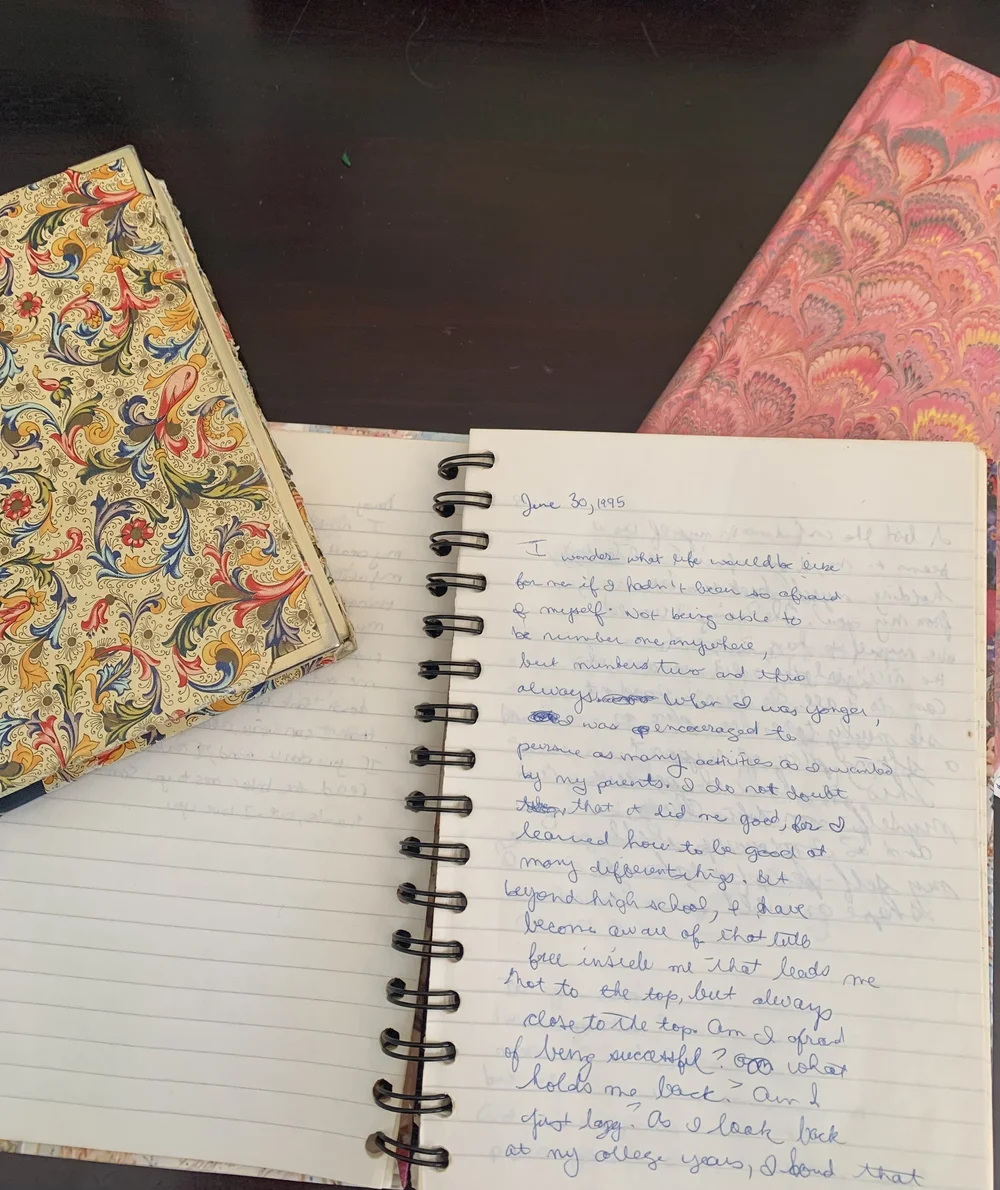 June 30, 1995
I wonder what life would be like
for me if I hadn't been so afraid
of myself. Not being able to
be number one anywhere,
but numbers two and three
always. When I was yonger,
I was encouraged to
persue as many activities as I wanted
by my parents. I do not doubt
that it did me good, for I
learned how to be good at
many different things. But
beyond high school, I have
become aware of that little
free inside me that leads me
not to the top, but always
close to the top. Am I afraid
of being successful? what
holds me back? Am I
just lazy? As I look back
at my college years, I that